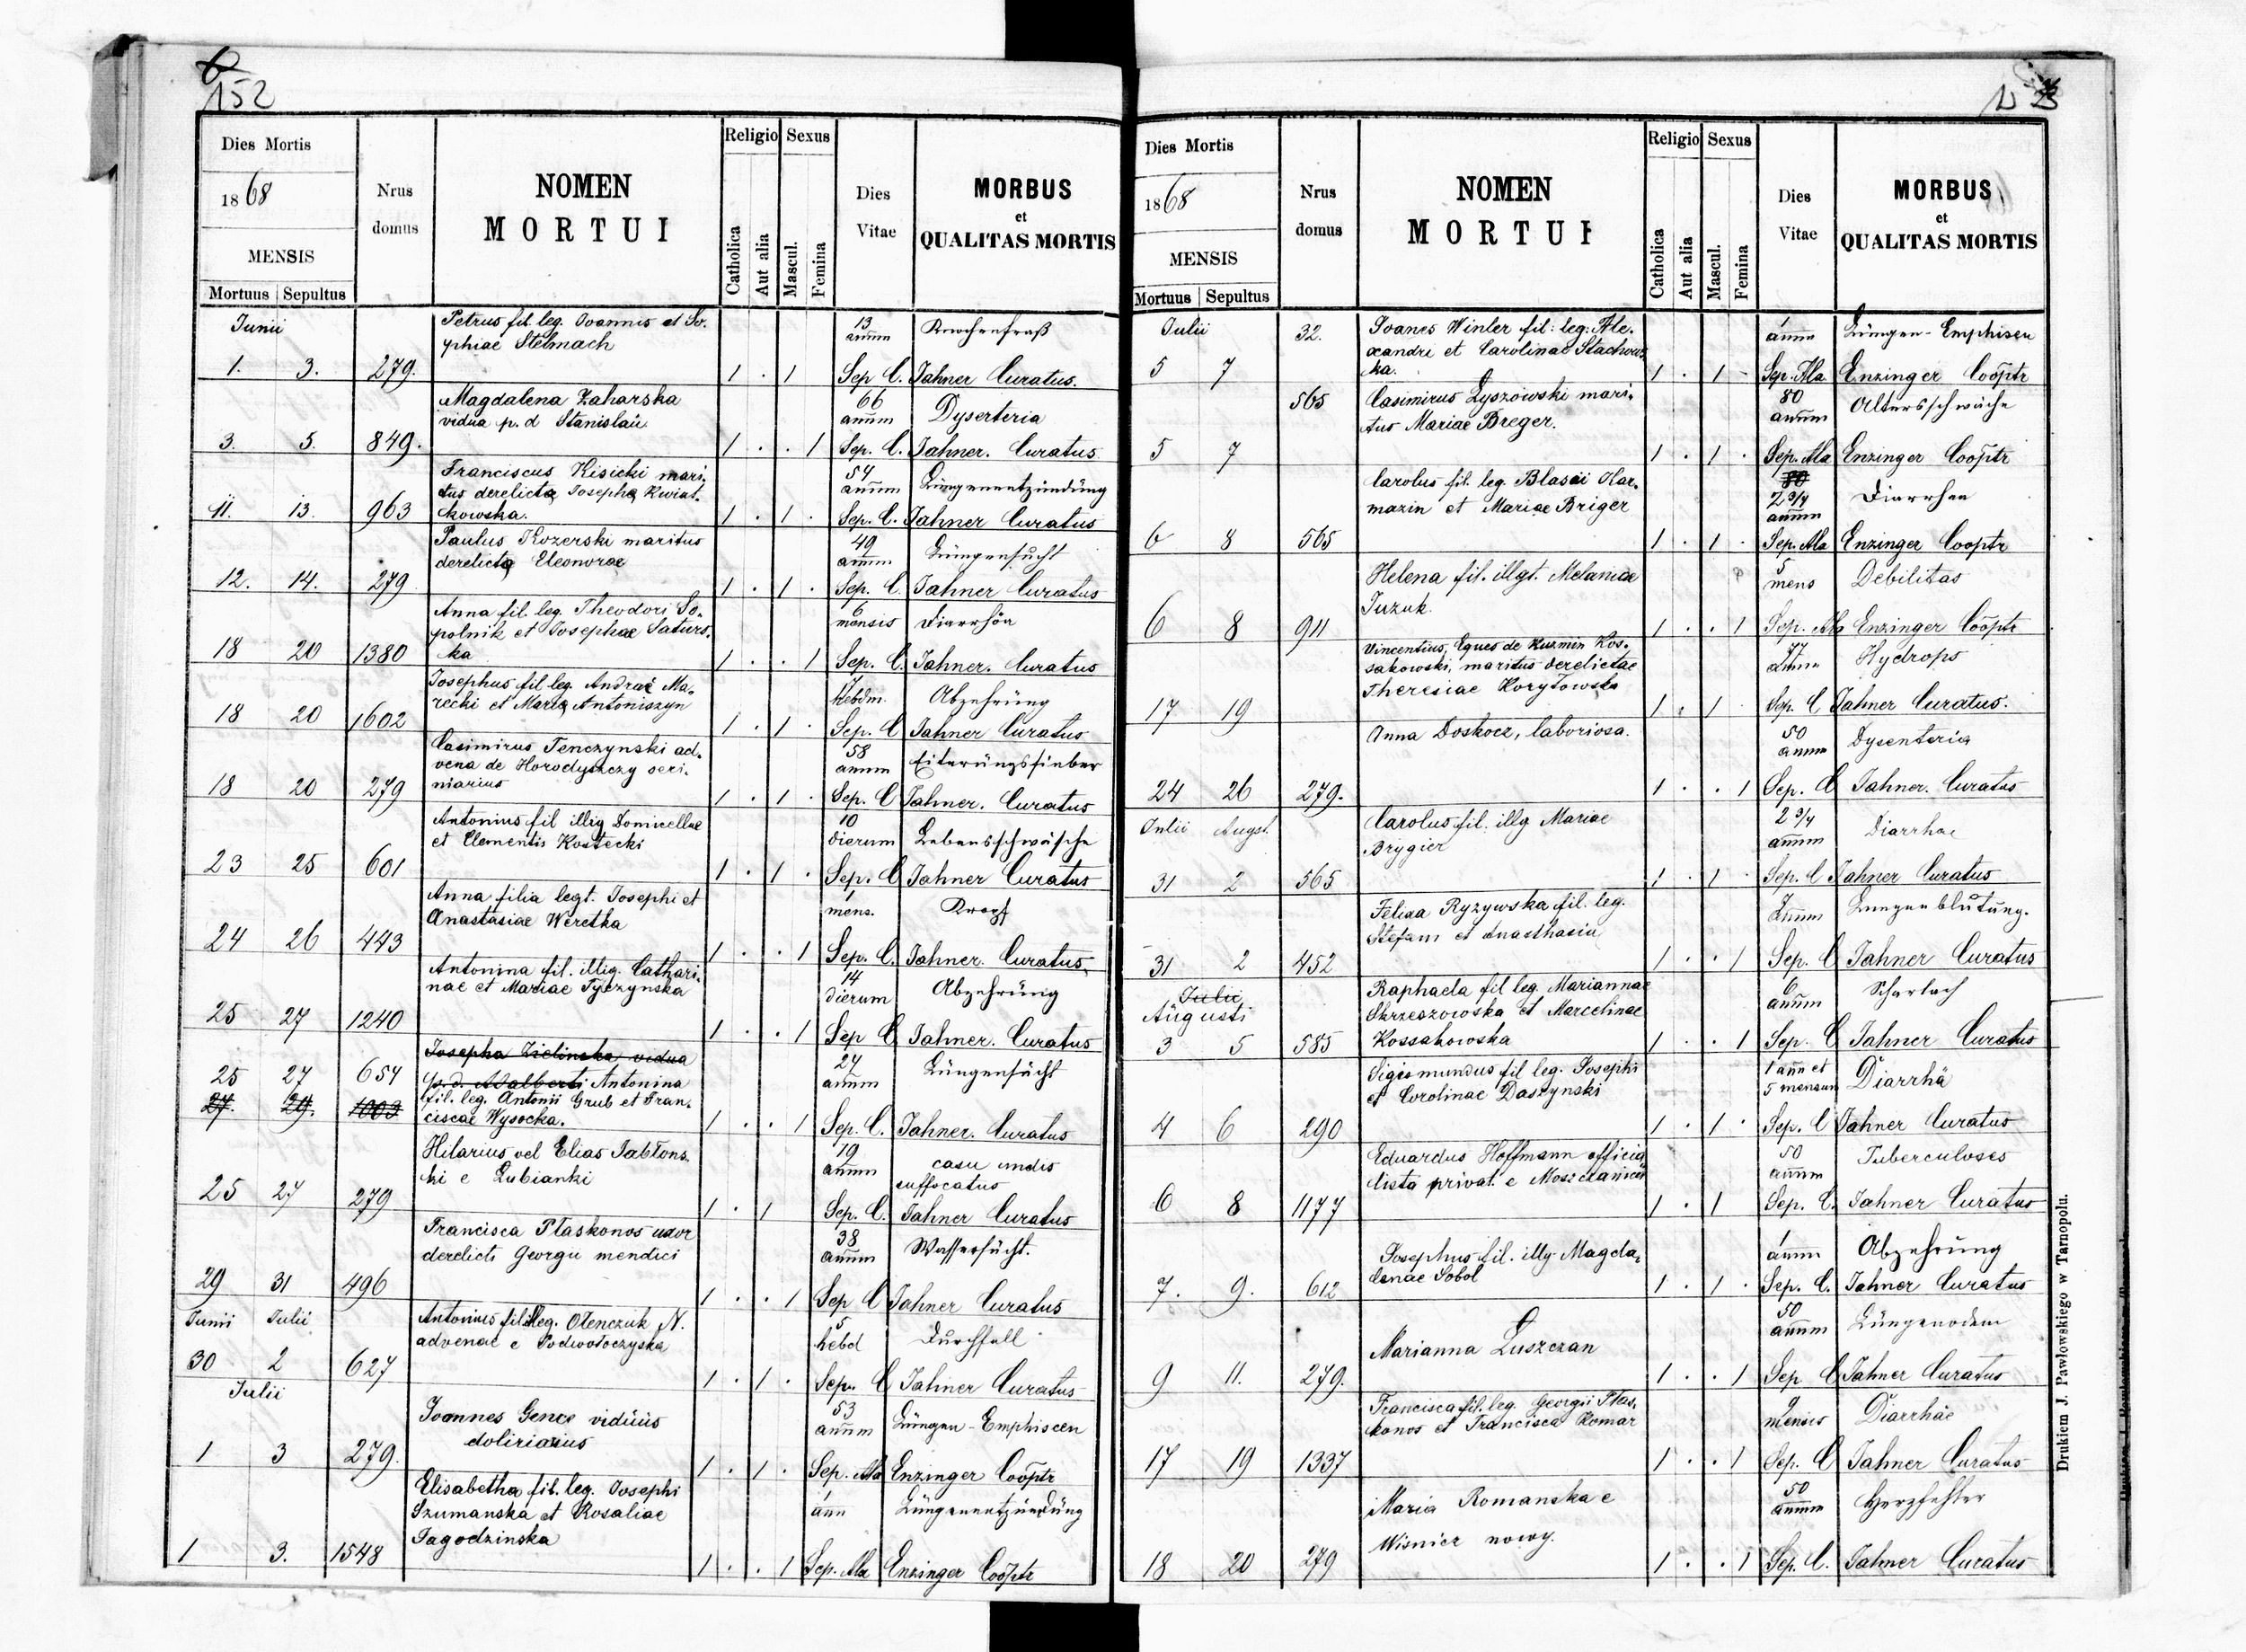 152
Dies Mortis
1868
MENSIS
Mortuus Sepultus
Nrus domus
NOMEN
MORTUI
Religio
Catholica
Aut alia
Sexus
Mascul.
Femina
Dies
Vitae
MORBUS
et
QUALITAS MORTIS
Junii
Petrus fil. leg. Joannis et So-
phiae Stelmach
13 annm Knochenfraß
1. 3. 279. 1 . 1 Sep C. Jahner Curatus.
Magdalena Zaharska
vidua p. d Stanislaü
66 annum Dyserteria
3. 5. 849. 1 . . 1 Sep. C. Jahner. Curatus
Franciscus Kisicki mari-
tus derelicta Josepha Kwiat-
kowska.
54 annum Lüngenentzündüng
11. 13. 963 1 . 1 . Sep. C. Jahner Curatus
Paulus Kozerski maritus
derelicta Eleonorae
49 annm Lüngensücht
12. 14. 279 1 . 1 . Sep. C. Jahner Curatus
Anna fil. leg. Theodori So-
polnik et Josephae Saturs-
ka
6 mensis Diarrhöa
18 20 1380 1 . . 1 Sep. C. Jahner. Curatus
Josephus fil leg. Andrae Ma-
recki et Maria Antoniszyn
7 Hebdm. Abzehrüng
18 20 1602 1 . 1 . Sep. C Jahner Curatus
Casimirus Tenczynski ad-
vena de Horodyszczy scri-
niarius
58 annm Eiterüngsfieber
18 20 279 1 . 1 . Sep. C Jahner. Curatus
Antonius fil illig Domicellae
et Clementis Kostecki
10 dierum Lebensschwäche
23 25 601 1 . 1 . Sep. C Jahner Curatus
Anna filia legt. Josephi et
Anastasiae Weretka
1 mens. Kropf
24 26 443 1 . . 1 Sep. C. Jahner. Curatus.
Antonina fil. illig. Cathari-
nae et Mariae Tyczynska
14 dierum Abzehrüng
25 27 1240 1 . . 1 Sep C Jahner. Curatus
Josepha Zielinska vidua
p. d. Adalberti Antonina
fil. leg. Antonii Grub et Fran-
ciscae Wysocka.
24 annum Lüngensücht
25 27 654
27. 29. 1003 1 . . 1 Sep. C. Jahner. Curatus
Hilarius vel Elias Jabłons-
ki e Lubianki
19 annum casu undis
suffocatus
25 27 279 1 . 1 Sep. C. Jahner Curatus
Francisca Płaskonos uxor
derelicti Georgii mendici
38 annum Wassersücht.
29 31 496 1 . . 1 Sep C Jahner Curatus
Junii Julii
Antonius fil illeg. Olenczuk N.
advenae e Podwołoczyska
5 hebd Durchfall
30 2 627 1 . 1 . Sep. C Jahner Curatus
Julii
Joannes Gence vidüüs
doliriarius
53 annum Lüngen-Emphiscen
1 3 279. 1 . 1 . Sep. Ala Enzinger Cooptr
Elisabetha fil. leg. Josephi
Szumanska et Rosaliae
Jagodzinska
1 ann Lüngenentzündüng
1 3. 1548 1 . . 1 Sep. Ala Enzinger Cooptr
Dies Mortis
1868
MENSIS
Mortuus Sepultus
Nrus domus
NOMEN
MORTUI
Religio
Catholica
Aut alia
Sexus
Mascul.
Femina
Dies
Vitae
MORBUS
et
QUALITAS MORTIS
Julii 32.
Joanes Winler fil: leg: Ale-
xandri et Carolinae Stachows-
ka.
1 annm Lüngen-Emphisen
5 7 1 . 1 . Sep. Ala Enzinger Cooptr
565 Casimirus Łyszowski mari-
tus Mariae Breger.
80 annum Altersschwäche
5 7 1 . 1 . Sep. Ala Enzinger Cooptr
Carolus fil. leg. Blasii Kar-
mazin et Mariae Briger
80
2 3/4 annum Diarrhea
6 8 565 1 . 1 . Sep. Ala Enzinger Cooptr
Helena fil. illgt. Melaniae
Juzuk.
5 mens Debilitas
6 8 911 1 . . 1 Sep. Ala Enzinger Cooptr
Vincentius, Eques de Kuzmin Kos-
sakowski, maritus derelictae
Theresiae Korytowska
77 annm Hydrops
17 19 1 . 1 Sep. C Jahner Curatus.
Anna Doskocz, laboriosa.
50 annm Dysenteria
24 26 279. 1 . . 1 Sep. C Jahner. Curatus
Julii Augst.
Carolus fil. illg Mariae
Brygier
2 3/4 annum Diarrhae
31 2 565 1 . 1 . Sep. C Jahner Curatus
Felixa Ryzywska fil. leg.
Stefani et Anasthasia
annum Lungenblütüng.
31 2 452 1 . . 1 Sep. C Jahner Curatus
Julii
Augusti
Raphaela fil leg. Mariannae
Skrzeszowska et Marcelinae
Kossakowska
6 annum Scharlach
3 5 585 1 . . 1 Sep. C Jahner Curatus
Sigismundus fil leg. Josephi
et Carolinae Daszynski
1 ann et
5 mensum Diarrhä
4 6 290 1 . 1 . Sep. C Jahner Curatus
Eduardus Hoffmann officia
lista privat. e
50 annum Tuberculoses
6 8 1177 1 . 1 Sep. C. Jahner Curatus
Josephus fil. illg. Magda-
lenae Sobol
1 annm Abzehrüng
7. 9. 612 1 . 1 . Sep. C. Jahner Curatus
Marianna Łuszczan
50 annum Lüngenödem
9 11. 279. 1 . . 1 Sep C Jahner Curatus
Francisca fil. leg. Georgii Płas-
konos et Francisca Komar
9 mensis Diarrhäe
17 19 1337 1 . . 1 Sep. C Jahner Curatus
Maria Romanska e
Wisnicz nowy.
50 annum Herzfehler
18 20 279 1 . . 1 Sep. C. Jahner Curatus
Drukiem J. Pawłowskiego w Tarnopolu.